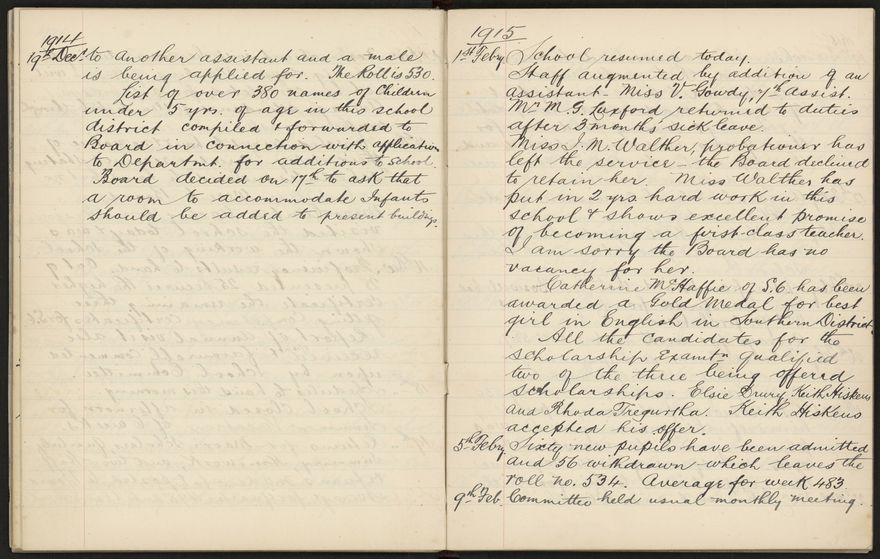 1914
19th Decr. to another assistant and a male
is being applied for. The Roll is 530.
List of over 380 names of Children
under 5 yrs. of age in this school
district compiled & forwarded to
Board in connection with application
to Departmt. for additions to School.
Board decided on 17th to ask that
a room to accommodate Infants
should be added to present buildings.
1915
1st Feby School resumed today.
Staff augmented by addition of an
assistant - Miss V. Gowdy, 7th Assist.
Mr M. G. Luxford returned to duties
after 3 months sick leave.
Miss J. M. Walther, probationer has
left the service - the Board declined
to retain her. Miss Walther has
put in 2 yrs. hard work in this
school & shows excellent promise
of becoming a first-class teacher.
I am sorry the Board has no
vacancy for her.
Catherine McHaffie of S.6 has been
awarded a Gold Medal for best
girl in English in Southern District.
All the candidates for the
Scholarship Examtn qualified
two of the three being offered
scholarships. Elsie Drury, Keith Hiskens
and Rhoda Tregurtha. Keith Hiskens
accepted his offer.
5th Feby Sixty new pupils have been admitted
and 56 withdrawn which leaves the
roll no. 534. Average for week 483
9th Feb. Committee held usual monthly meeting.